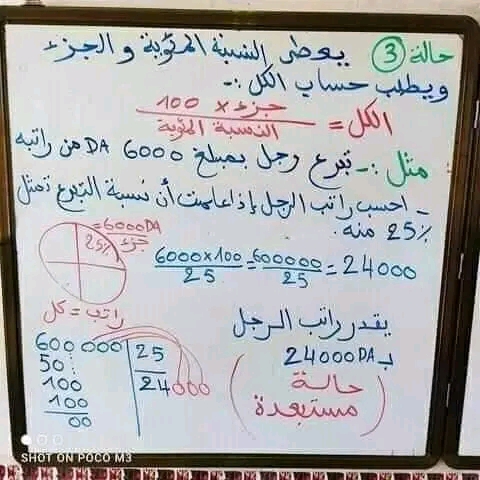 حالة 3 يعطى النسبة المئوية و الجزء
ويطلب حساب الكل :-
الكل = جزء x 100 / النسبة المئوية
مثل :- تبرع رجل بمبلغ 6000 DA من راتبه
- احسب راتب الرجل إذا علمت أن نسبة التبرع تمثل
25% منه.
= 6000DA
جزء
25%
راتب = كل
6000x100 / 25 = 600000 / 25 = 24000
يقدر راتب الرجل
بـ 24000DA
(حالة
مستبعدة)
600 000 | 25
50 24000
100
100
00
SHOT ON POCO M3